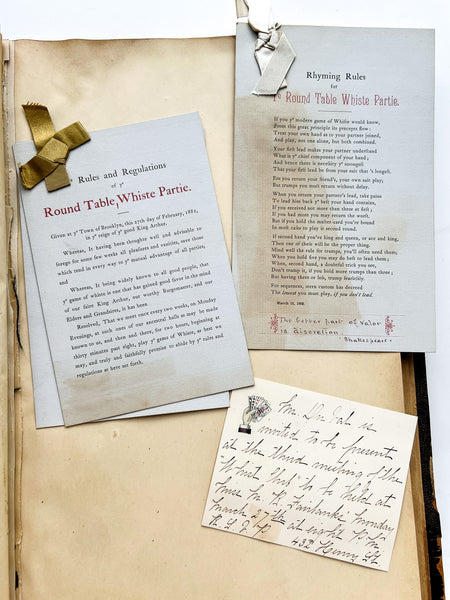 Rules and Regulations
of yᵉ
Round Table Whiste Partie.
Given at yᵉ Town of Brooklyn, this 27th day of February, 1882,
in yᵉ reign of yᵉ good King Arthur.
Whereas, It having been thought well and advisable to
forego for some few weeks all pleasures and vanities, save those
which tend in every way to yᵉ mutual advantage of all parties;
and
Whereas, It being widely known to all good people, that
yᵉ game of whiste is one that has gained good favor in the mind
of our Sire King Arthur, our worthy Burgomaster, and our
Elders and Grandsires, it has been
Resolved, That we meet once every two weeks, on Monday
Evenings, at such ones of our ancestral halls as may be made
known to us, and then and there, for two hours, beginning at
thirty minutes past eight, play yᵉ game of Whiste, as best we
may, and truly and faithfully promise to abide by yᵉ rules and
regulations as here set forth.
Rhyming Rules
for
yᵉ Round Table Whiste Partie.
If you yᵉ modern game of Whiste would know,
From this great principle its precepts flow:
Treat your own hand as to your partner joined,
And play, not one alone, but both combined.
Your first lead makes your partner understand
What is yᵉ chief component of your hand;
And hence there is necessity yᵉ strongest
That your first lead be from your suit that 's longest.
For you return your friend's, your own suit play;
But trumps you must return without delay.
When you return your partner's lead, take pains
To lead him back yᵉ best your hand contains,
If you received not more than three at first;
If you had more you may return the worst.
But if you hold the master-card you're bound
In most cases to play it second round.
If second hand you've king and queen, or ace and king,
Then one of their will be the proper thing.
Mind well the rule for trumps, you'll often need them;
When you hold five you may do best to lead them;
When, second hand, a doubtful trick you see,
Don't trump it, if you hold more trumps than three;
But having three or less, trump fearlessly.
For sequences, stern custom has decreed
The lowest you must play, if you don't lead.
March 13, 1882.
The better part of valor
is discretion.
Shakespeare.
is
invited to be present
at the third meeting of the
"Whist Club" to be held at
Miss M. R. Fairbanks' Monday
March 27th at eight P.M.
R. S. V. P.
432 Henry St.